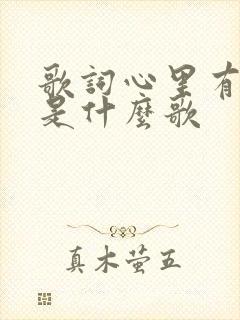 歌詞心里有
是什麼歌
真木萤五